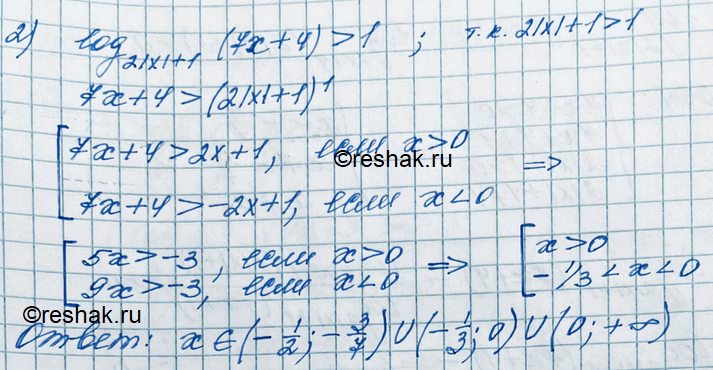 2) log_{2|x|+1} (7x+4) > 1 ; т.к. 2|x|+1>1
7x+4 > (2|x|+1)^1
[ 7x+4 > 2x+1, если x>0
©reshak.ru =>
7x+4 > -2x+1, если x<0
[ 5x > -3, если x>0 => [ x>0
9x > -3, если x<0 -1/3 < x < 0
©reshak.ru
Ответ: x ∈ (-1/2; -3/7) ∪ (-1/3; 0) ∪ (0; +∞)